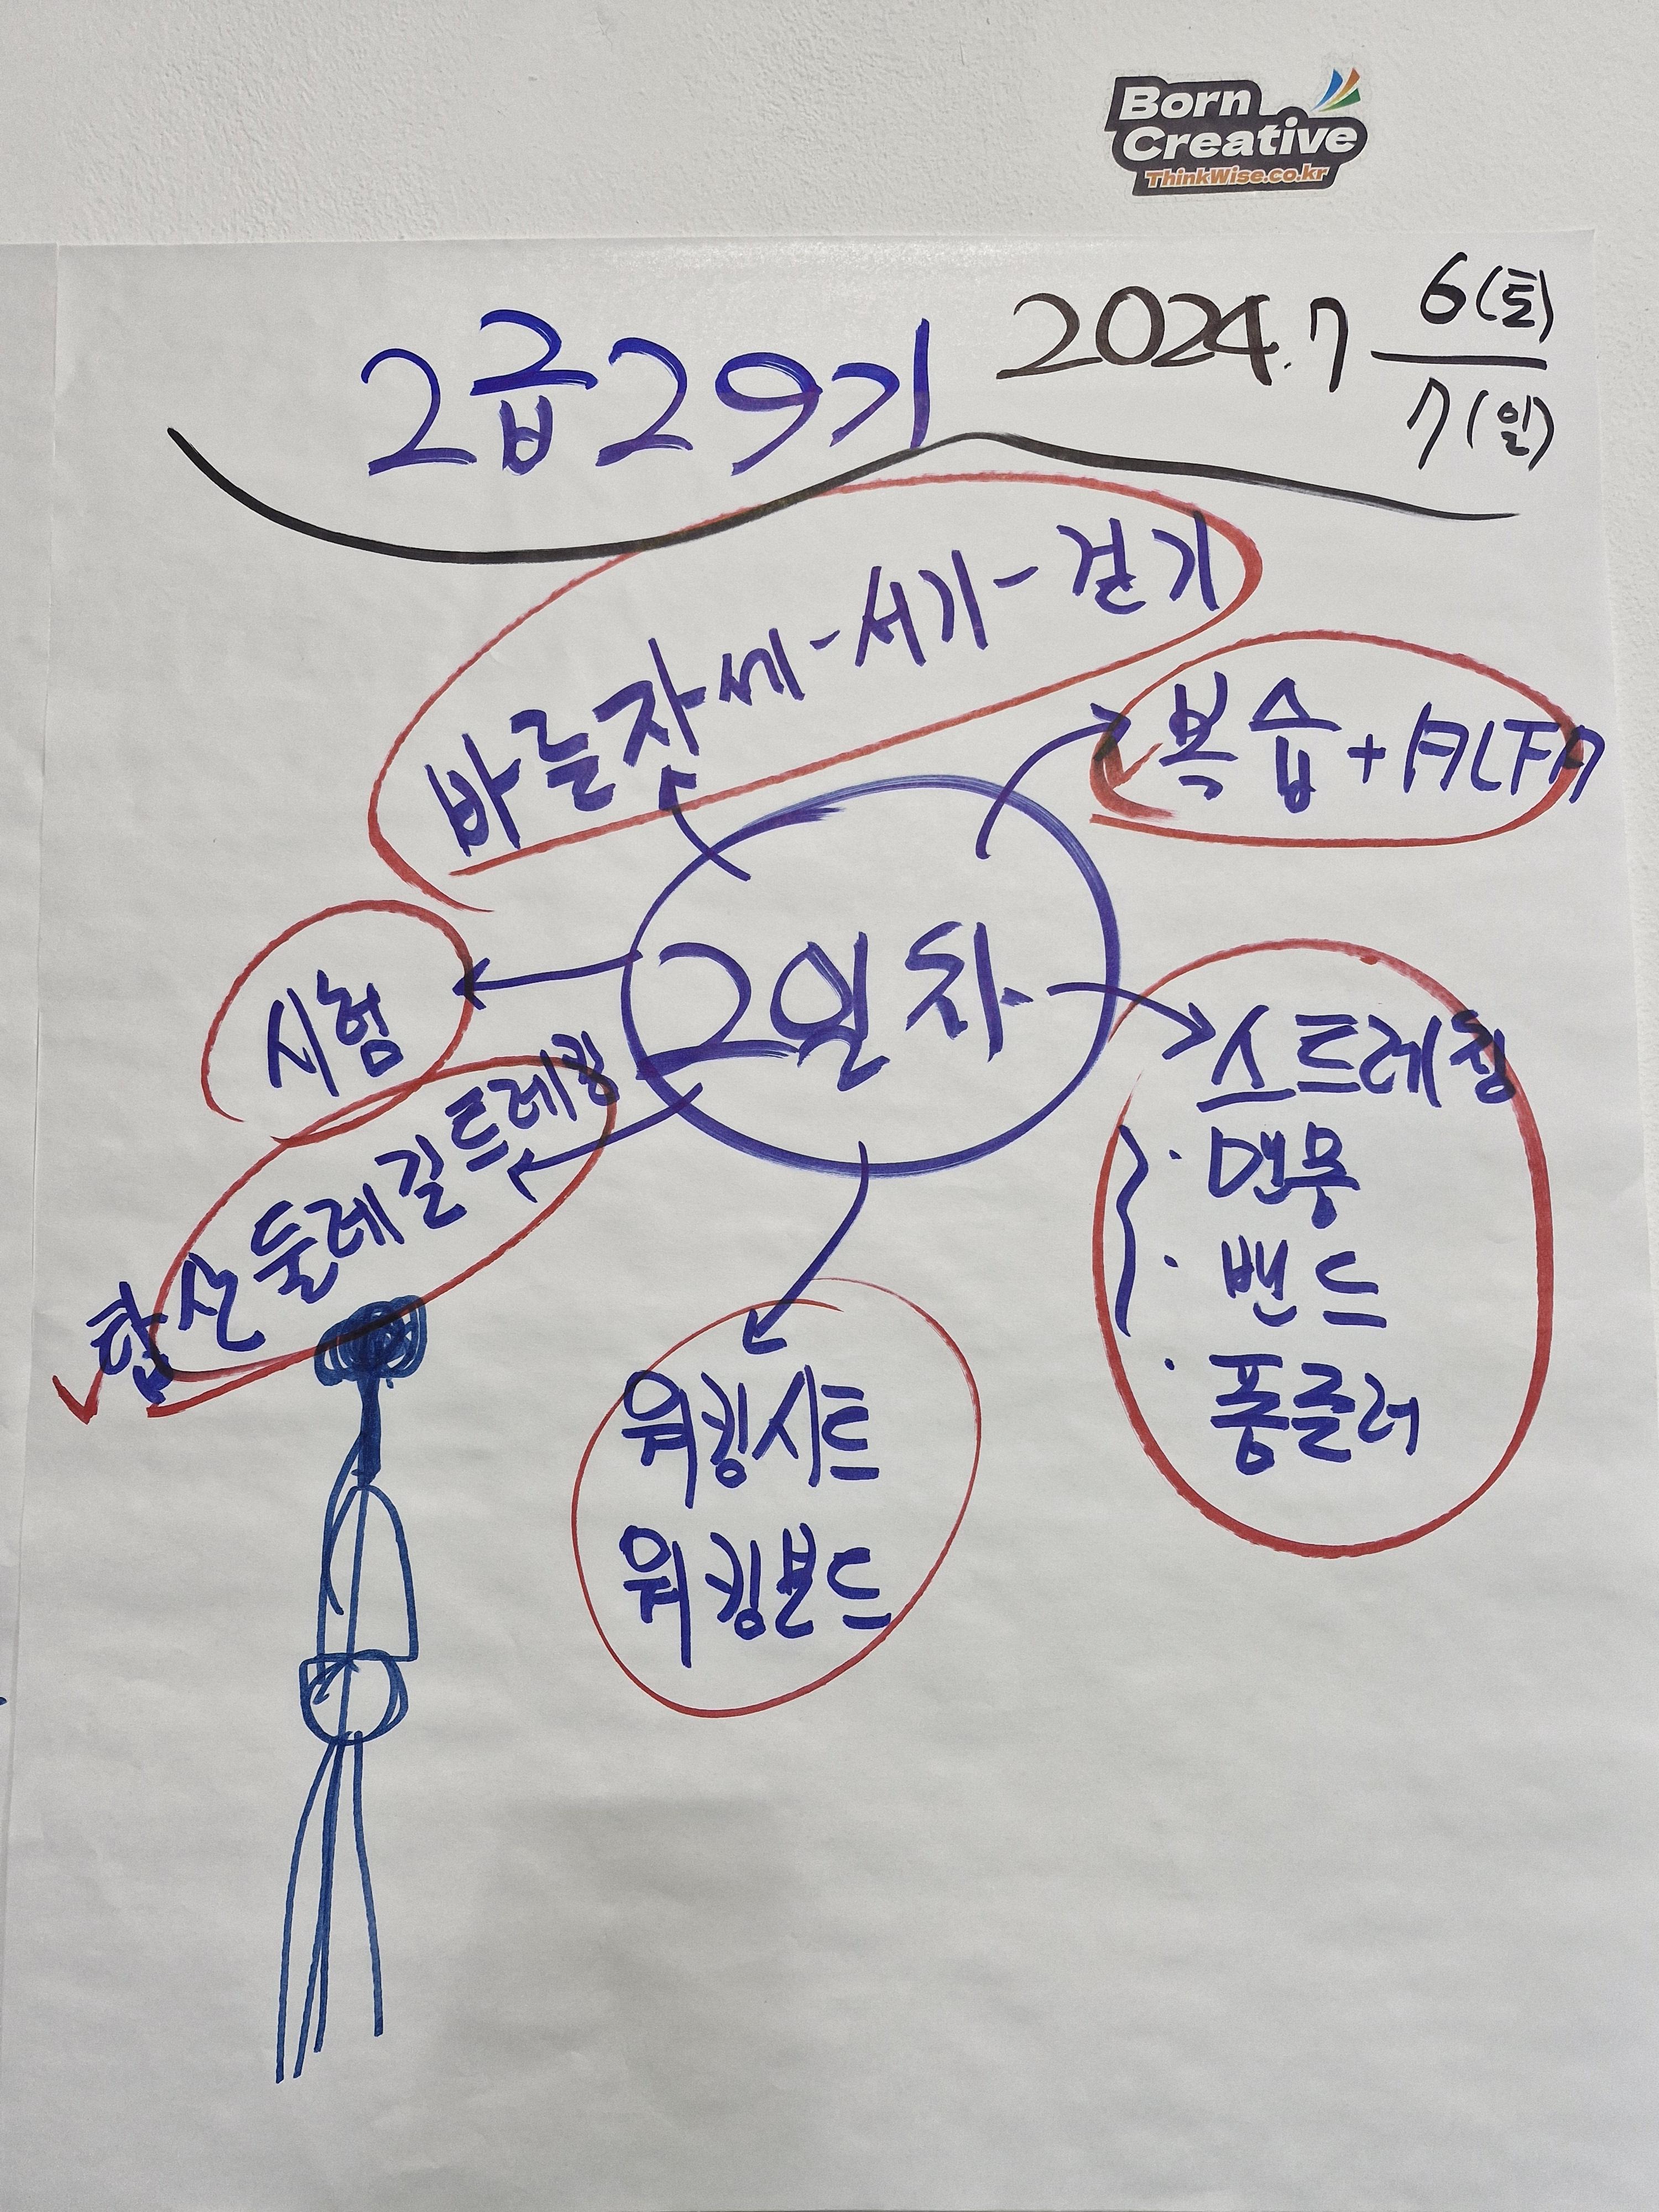 Born
Creative
ThinkWise.co.kr
2급29기
2024.7 6(토)
7(일)
바를자세-서기-걷기
복습+ALFA
2일차
스트레칭
· 맨몸
· 밴드
· 폼롤러
워킹시트
워킹밴드
산둘레길트레킹
시험